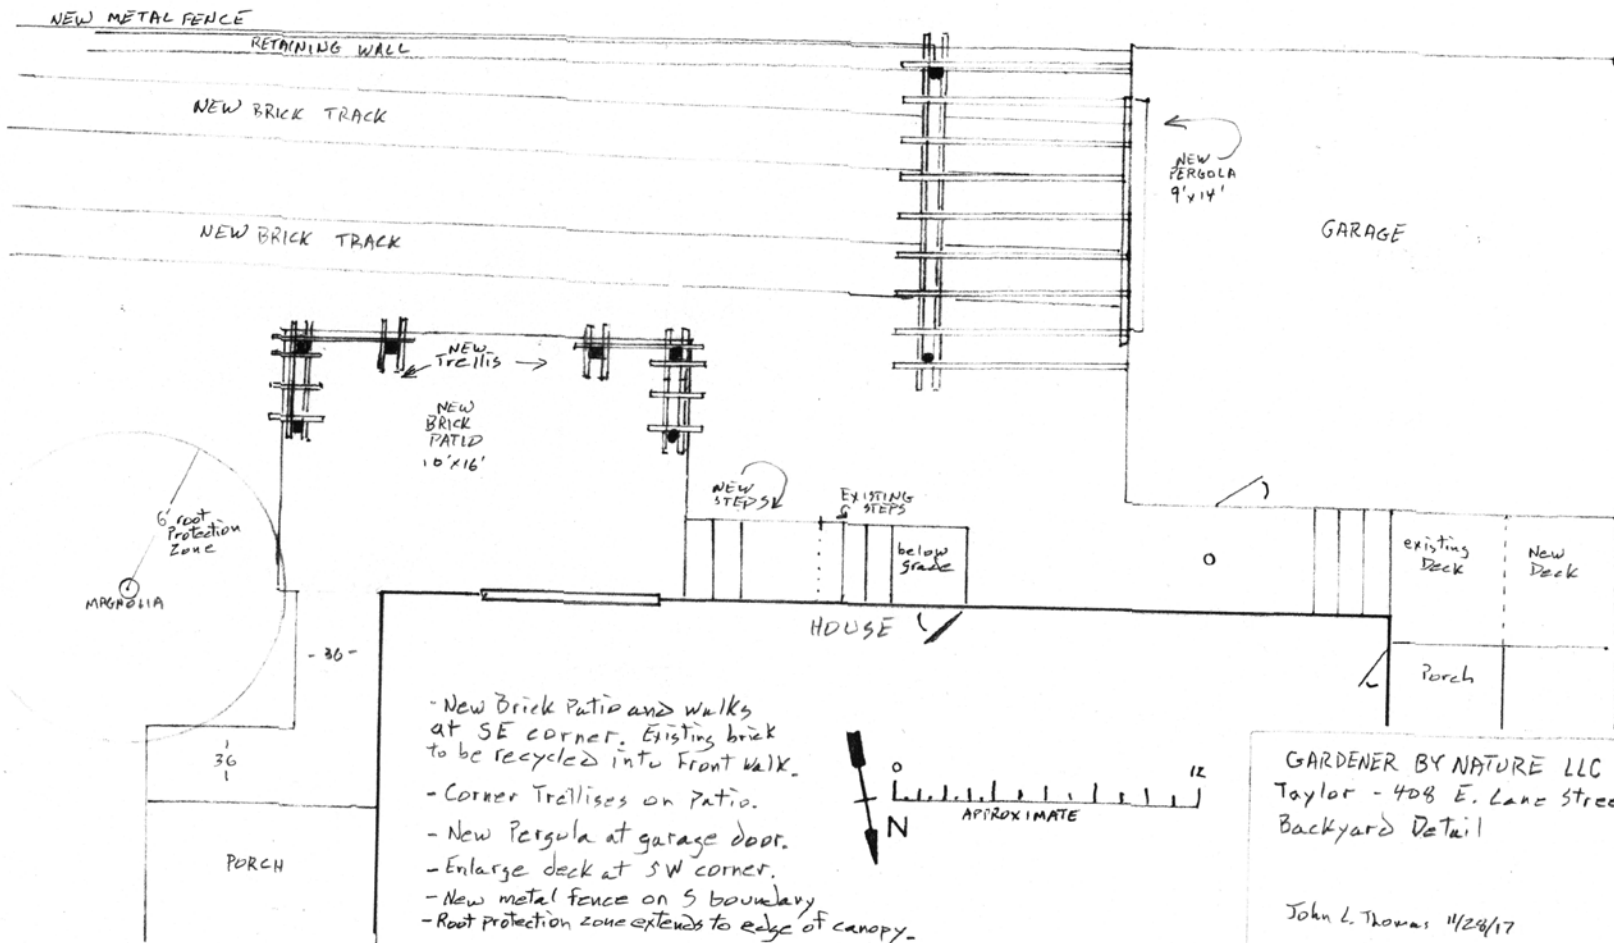 NEW METAL FENCE
RETAINING WALL
NEW BRICK TRACK
NEW BRICK TRACK
NEW
PERGOLA
9'x14'
GARAGE
NEW
Trellis
NEW
BRICK
PATIO
10'x16'
6' root
Protection
Zone
MAGNOLIA
NEW
STEPS
EXISTING
STEPS
below
grade
existing
Deck
New
Deck
HOUSE
Porch
- 36 -
36
PORCH
- New Brick Patio and walks
at SE corner. Existing brick
to be recycled into Front walk.
- Corner Trellises on Patio.
- New Pergula at garage door.
- Enlarge deck at SW corner.
- New metal fence on S boundary
- Root protection zone extends to edge of canopy.
0
12
APPROXIMATE
N
GARDENER BY NATURE LLC
Taylor - 408 E. Lane Stree
Backyard Detail
John L. Thomas 11/28/17